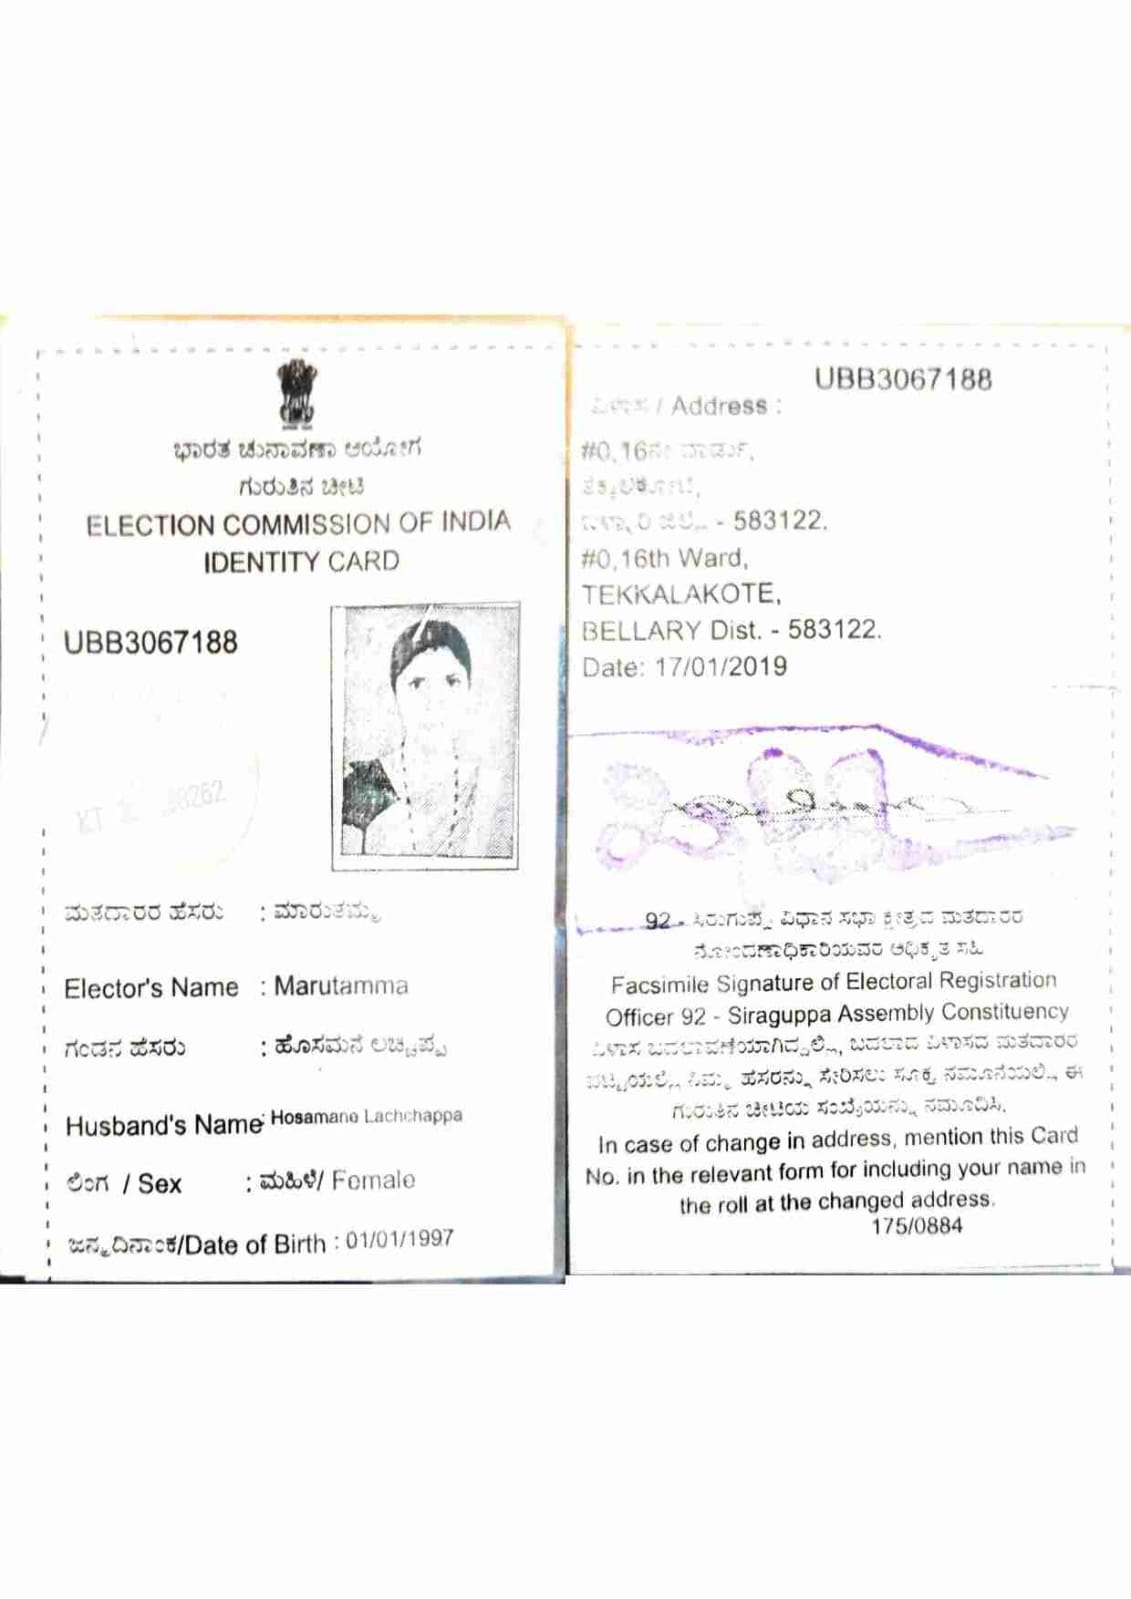 ಭಾರತ ಚುನಾವಣಾ ಆಯೋಗ
ಗುರುತಿನ ಚೀಟಿ
ELECTION COMMISSION OF INDIA
IDENTITY CARD
UBB3067188
ಮತದಾರರ ಹೆಸರು : ಮಾರುತಮ್ಮ
Elector's Name : Marutamma
ಗಂಡನ ಹೆಸರು : ಹೊಸಮನೆ ಲಚ್ಚಪ್ಪ
Husband's Name : Hosamane Lachchappa
ಲಿಂಗ / Sex : ಮಹಿಳೆ/ Female
ಜನ್ಮ ದಿನಾಂಕ/Date of Birth : 01/01/1997
UBB3067188
ವಿಳಾಸ / Address :
#0,16ನೇ ವಾರ್ಡು,
ತೆಕ್ಕಲಕೋಟೆ,
ಬಳ್ಳಾರಿ ಜಿಲ್ಲೆ - 583122.
#0,16th Ward,
TEKKALAKOTE,
BELLARY Dist. - 583122.
Date: 17/01/2019
92 - ಸಿರುಗುಪ್ಪ ವಿಧಾನ ಸಭಾ ಕ್ಷೇತ್ರದ ಮತದಾರರ
ನೋಂದಣಾಧಿಕಾರಿಯವರ ಅಧಿಕೃತ ಸಹಿ
Facsimile Signature of Electoral Registration
Officer 92 - Siraguppa Assembly Constituency
ವಿಳಾಸ ಬದಲಾವಣೆಯಾಗಿದ್ದಲ್ಲಿ, ಬದಲಾದ ವಿಳಾಸದ ಮತದಾರರ
ಪಟ್ಟಿಯಲ್ಲಿ ನಿಮ್ಮ ಹೆಸರನ್ನು ಸೇರಿಸಲು ಸೂಕ್ತ ನಮೂನೆಯಲ್ಲಿ, ಈ
ಗುರುತಿನ ಚೀಟಿಯ ಸಂಖ್ಯೆಯನ್ನು ನಮೂದಿಸಿ.
In case of change in address, mention this Card
No. in the relevant form for including your name in
the roll at the changed address.
175/0884